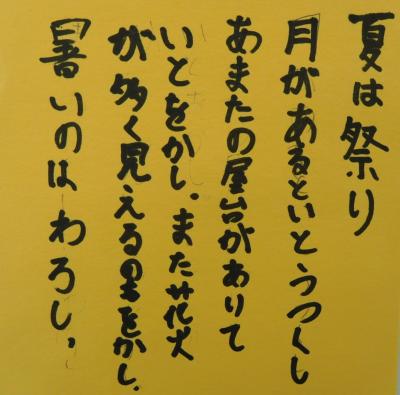 夏は祭り
月があるといとうつくし
あまたの屋台がありて
いとをかし。また花火
が多く見える里をかし。
暑いのはわろし。